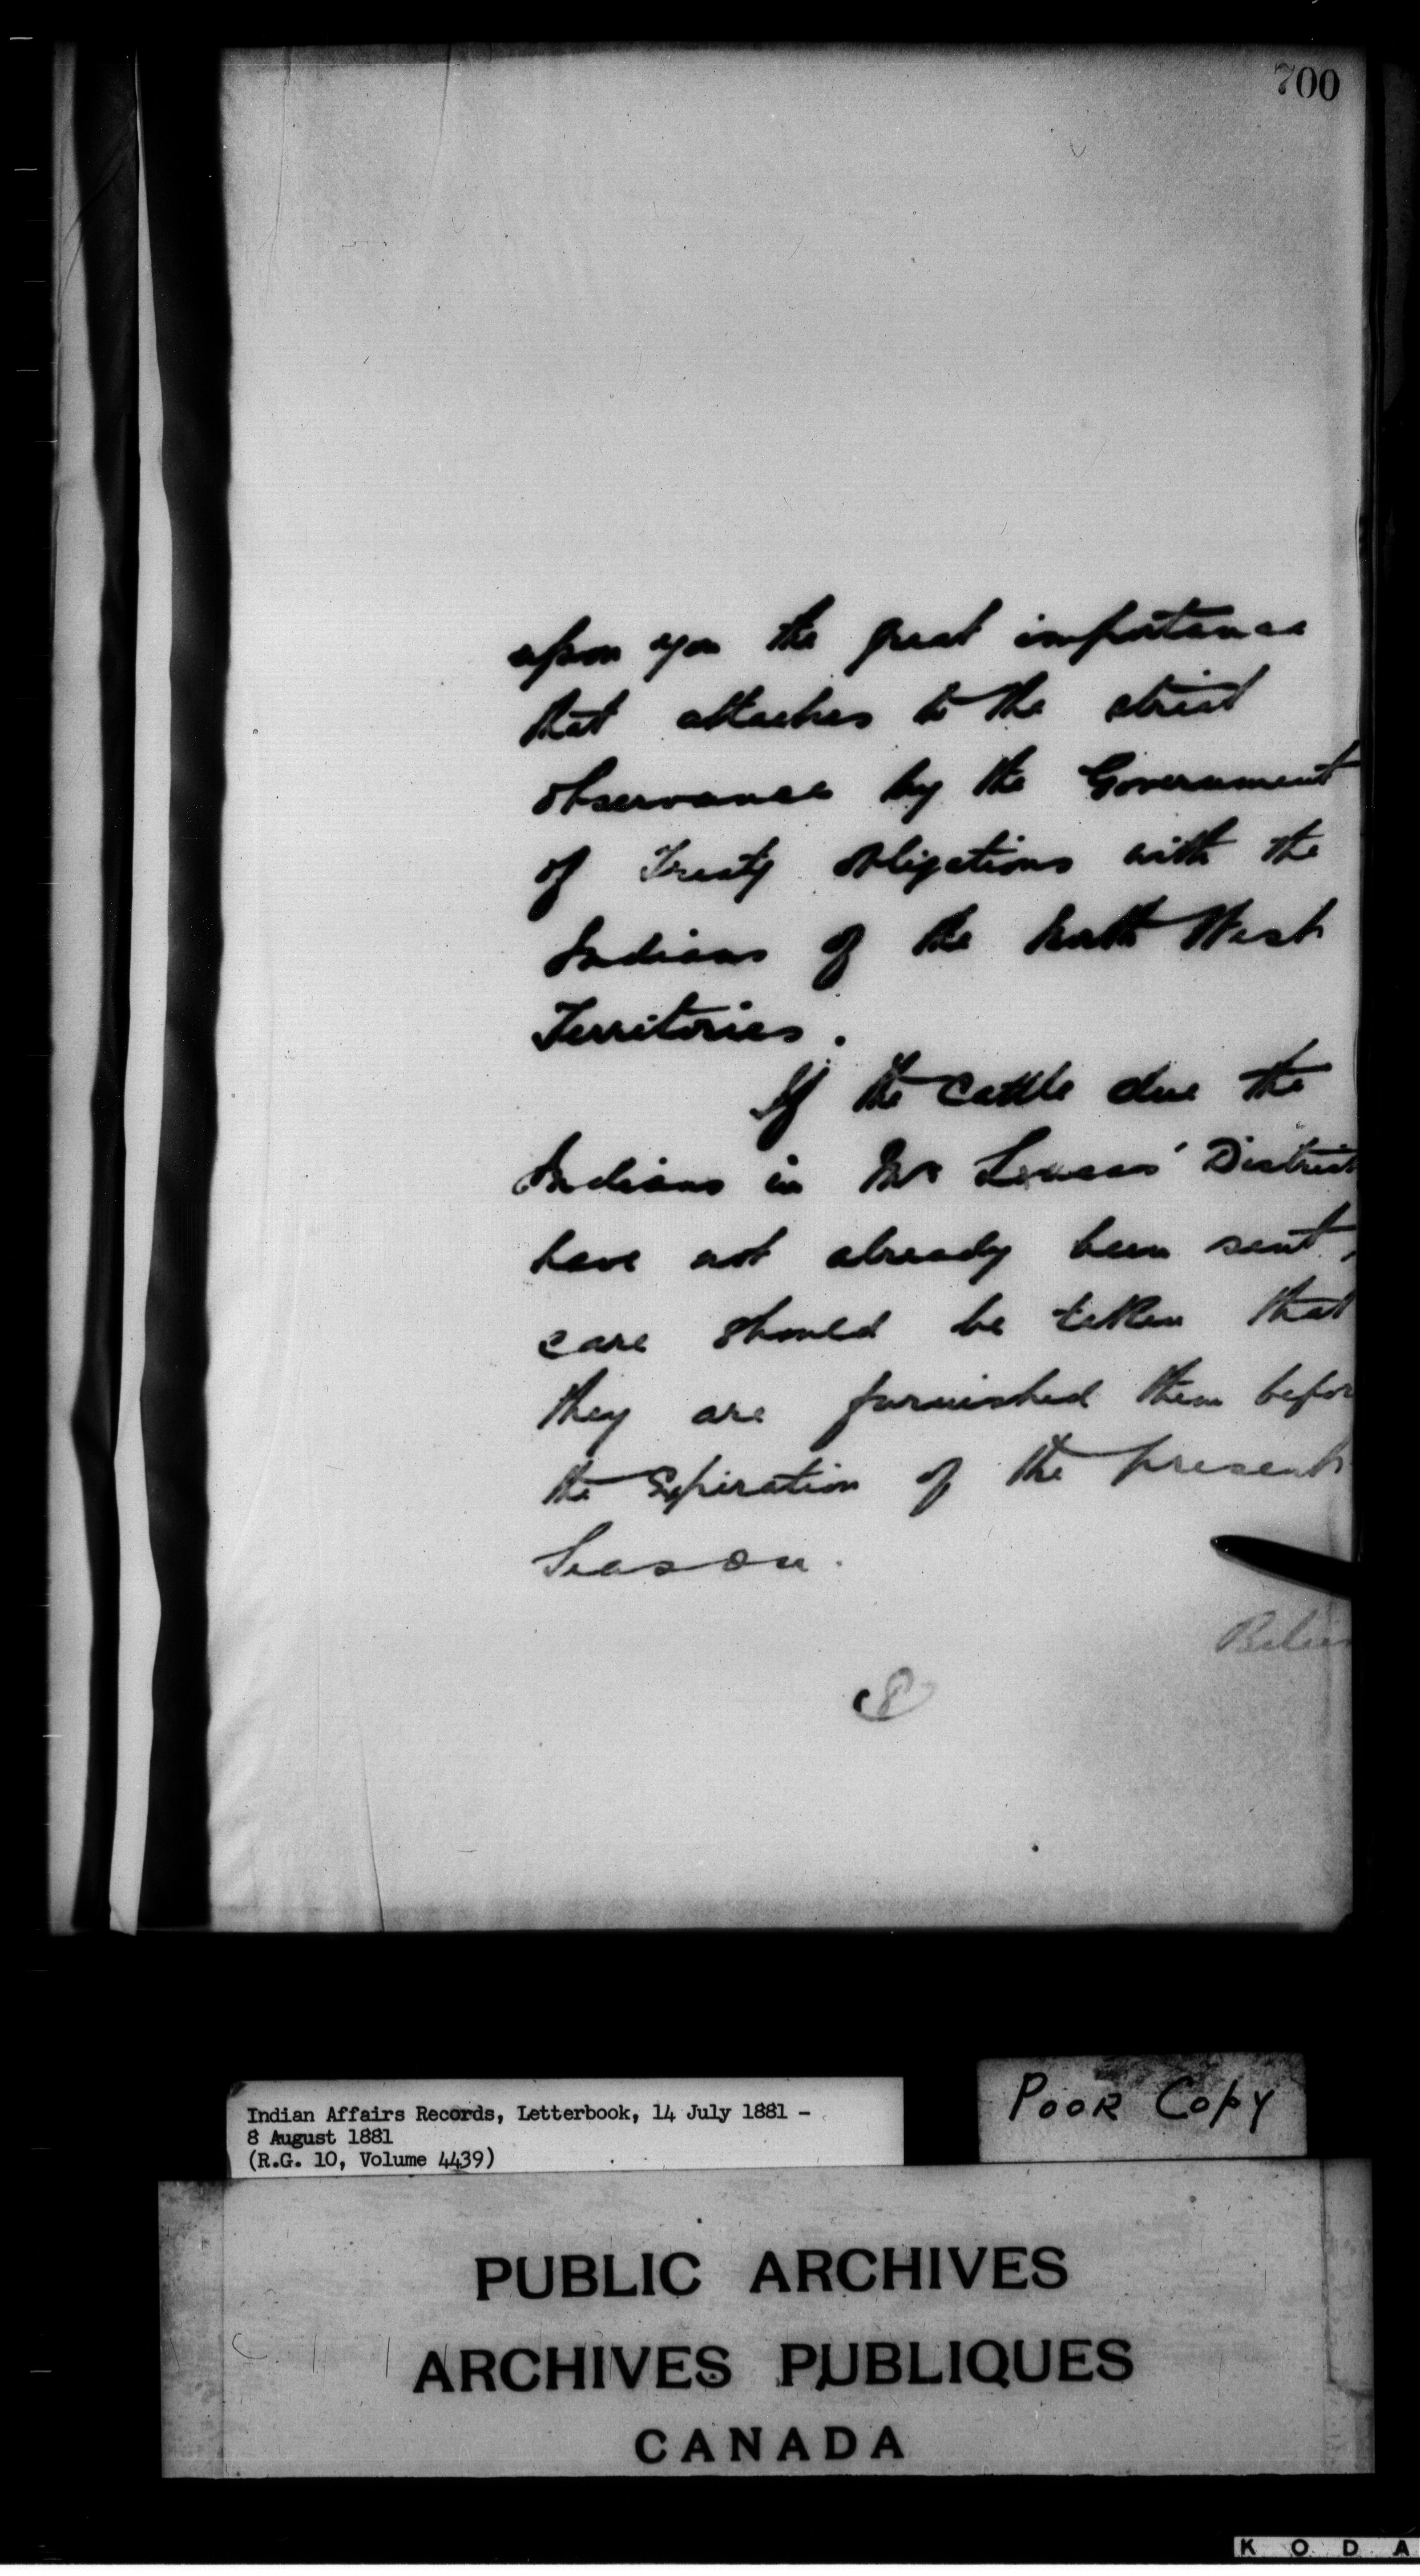 700
upon you the great importance
that attaches to the strict
observance by the Government
of Treaty obligations with the
Indians of the North West
Territories.
If the Cattle due the
Indians in Mr Lucas' District
have not already been sent,
care should be taken that
they are furnished them befor
the Expiration of the present
Season.
8
Indian Affairs Records, Letterbook, 14 July 1881 -
8 August 1881
(R.G. 10, Volume 4439)
POOR COPY
PUBLIC ARCHIVES
ARCHIVES PUBLIQUES
CANADA
KODA